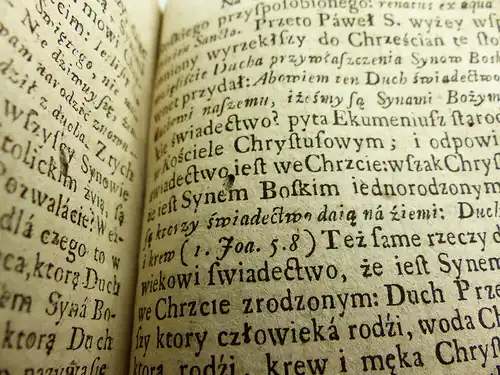 mowi C
Świętego, nie
Nie dziwuy się, że
wam narodzić znowu
dził z ducha. Z tych
wszyscy Synowie
tolickim żyią, są
Pozwalacie? Weź
dlá czego to w
ca, ktorą Duch
em Syná Bo-
ktorą Duch
nazywasię
skiego przysposobionego: renatus ex aqua
Sancto. Przeto Páweł S. wyżey wſ
niony wyrzekłszy do Chrześcian te sło
ście Ducha przywłaszczenia Synow Bosk
wnet przydał: Abowiem ten Duch świadectwo
naszemu, iżeśmy są Synami Bożym
ie świadectwo? pyta Ekumeniusz starod
w Kościele Chrystusowym; i odpowi
świadectwo iest we Chrzcie: wszak Chrys
że iest Synem Boskim iednorodzonym
są ktorzy świadectwo daią ná źiemi: Duch
i krew (1. Joa. 5. 8) Też same rzeczy d
wiekowi świadectwo, że iest Synem
we Chrzcie zrodzonym: Duch Prze
szy ktory człowieká rodźi, woda Ch
ktorą rodźi, krew i męka Chryst